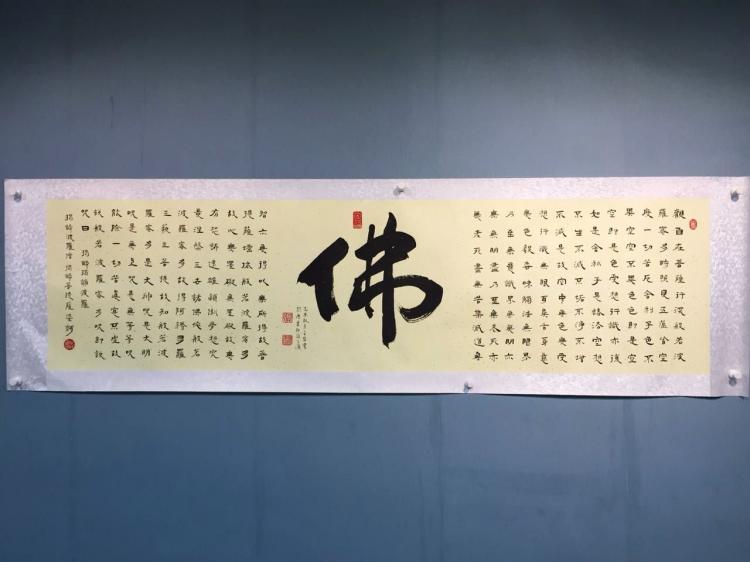 觀自在菩薩行深般若波
羅蜜多時照見五蘊皆空
度一切苦厄舍利子色不
異空空不異色色即是空
空即是色受想行識亦復
如是舍利子是諸法空想
不生不滅不垢不淨不增
不減是故空中無色無受
想行識無眼耳鼻舌身意
無色聲香味觸法無眼界
乃至無意識界無無明亦
無無明盡乃至無老死亦
無老死盡無苦集滅道無
佛
智亦無得以無所得故菩
提薩埵依般若波羅蜜多
故心無罣礙無罣礙故無
有恐怖遠離顛倒夢想究
竟涅槃三世諸佛依般若
波羅蜜多故得阿耨多羅
三藐三菩提故知般若波
羅蜜多是大神咒是大明
咒是無上咒是無等等咒
能除一切苦真實不虛故
說般若波羅蜜多咒即說
咒曰 揭諦揭諦波羅
揭諦波羅僧揭諦菩提薩婆訶